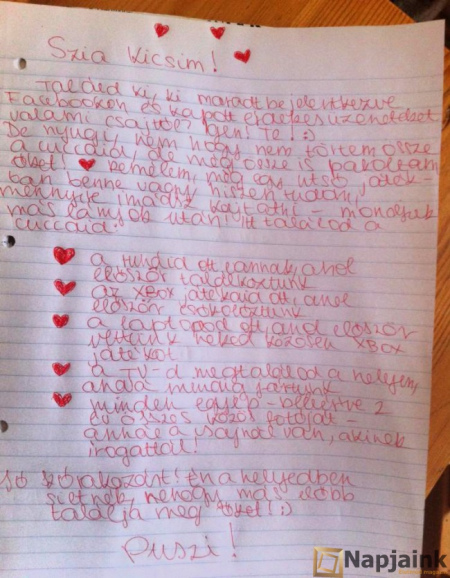 Szia Kicsim!
Találd ki, ki maradt bejelentkezve
Facebookon és kapott érdekes üzeneteket
valami csajtól? Igen! Te! :)
De nyugi, nem hogy nem törtem össze
a cuccaid, de még össze is pakoltam
őket! Remélem, még egy utsó játék-
ban benne vagy, hiszen tudom,
mennyire imádsz kajtatni - mondjuk
más lányok után! Itt találod a
cuccaid:
a ruháid ott vannak, ahol
először találkoztunk
az Xbox játékaid ott, ahol
először csókolóztunk
a laptopod ott, ahol először
vettünk neked közösen Xbox
játékot
a TV-d megtalálod a helyen,
ahová mindig jártunk
minden egyéb - beleértve 2
év összes közös fotóját -
annál a csajnál van, akinek
írogattál!
Jó szórakozást! Én a helyedben
sietnék, nehogy más előbb
találja meg őket! :)
Puszi!
Napjaink